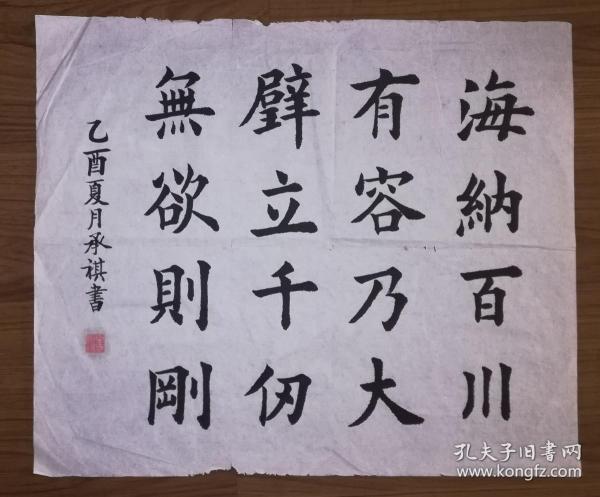 海納百川
有容乃大
壁立千仞
無欲則剛
乙酉夏月承祺書
孔夫子旧書网
www.kongfz.com